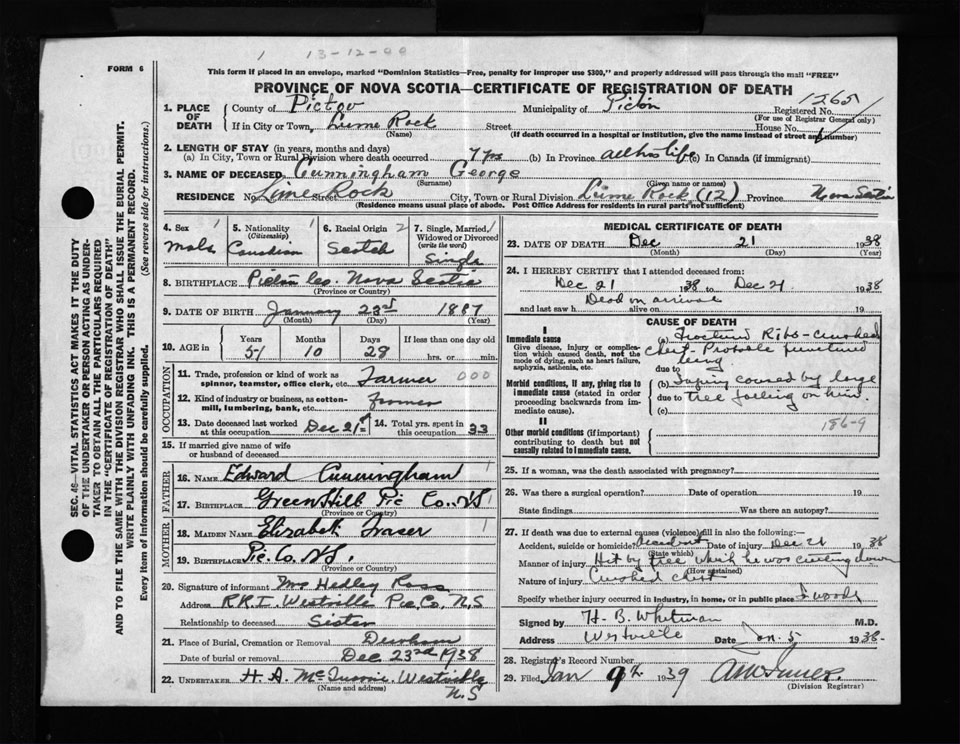 1 13-12-00
FORM 6
This form if placed in an envelope, marked "Dominion Statistics—Free, penalty for improper use $300," and properly addressed will pass through the mail "FREE"
PROVINCE OF NOVA SCOTIA—CERTIFICATE OF REGISTRATION OF DEATH
1265
1. PLACE OF DEATH County of Pictou Municipality of Pictou Registered No.
(For use of Registrar General only)
If in City or Town, Lime Rock Street House No.
(Name) (If death occurred in a hospital or institution, give the name instead of street and number)
2. LENGTH OF STAY (in years, months and days)
(a) In City, Town or Rural Division where death occurred 7 yrs (b) In Province all his life (c) In Canada (if immigrant)
3. NAME OF DECEASED Cunningham George
(Surname) (Given name or names)
RESIDENCE Lime Rock Street City, Town or Rural Division Lime Rock (12) Province Nova Scotia
(Residence means usual place of abode. Post Office Address for residents in rural parts not sufficient)
4. Sex 1 Male
5. Nationality (Citizenship) 1 Canadian
6. Racial Origin 2 Scotch
7. Single, Married, Widowed or Divorced (write the word) 1 Single
8. BIRTHPLACE Pictou Co. Nova Scotia
(Province or Country)
9. DATE OF BIRTH January 23rd 1887
(Month) (Day) (Year)
10. AGE in Years Months Days If less than one day
51 10 28 hrs. or min.
OCCUPATION
11. Trade, profession or kind of work as spinner, teamster, office clerk, etc. Farmer 000
12. Kind of industry or business, as cotton-mill, lumbering, bank, etc. Farmer
13. Date deceased last worked at this occupation Dec 21st 14. Total yrs. spent in this occupation 33
15. If married give name of wife or husband of deceased
FATHER
16. NAME Edward Cunningham 1
17. BIRTHPLACE Green Hill Pic Co. NS
(Province or Country)
MOTHER
18. MAIDEN NAME Elizabeth Fraser 1
19. BIRTHPLACE Pic. Co. N.S.
(Province or Country)
20. Signature of informant Mrs Hedley Ross
Address R.R.1. Westville Pic. Co. N.S
Relationship to deceased Sister
21. Place of Burial, Cremation or Removal Durham
Date of burial or removal Dec. 23rd 1938
22. UNDERTAKER H. A. Westville N.S
(Name and address)
MEDICAL CERTIFICATE OF DEATH
23. DATE OF DEATH Dec 21 1938
(Month) (Day) (Year)
24. I HEREBY CERTIFY that I attended deceased from:
Dec 21 1938 to Dec 21 1938
Dead on arrival
and last saw h alive on 19
CAUSE OF DEATH
I
Immediate cause
Give disease, injury or complication which caused death, not the mode of dying, such as heart failure, asphyxia, asthenia, etc.
(a) Fractured Ribs - crushed
chest - Probable punctured
lung
due to
Morbid conditions, if any, giving rise to immediate cause (stated in order proceeding backwards from immediate cause).
(b) Injury caused by large
due to tree falling on him.
(c)
186-9
II
Other morbid conditions (if important) contributing to death but not causally related to immediate cause.
25. If a woman, was the death associated with pregnancy?
26. Was there a surgical operation? Date of operation 19
State findings Was there an autopsy?
27. If death was due to external causes (violence) fill in also the following:—
Accident, suicide or homicide? accident Date of injury Dec 21 1938
(State which)
Manner of injury Hit by tree which he was cutting down
(How sustained)
Nature of injury Crushed chest
Specify whether injury occurred in industry, in home, or in public place woods
Signed by H. B. Whitman M.D.
Address Westville Date Jan. 5 1938-
28. Registrar's Record Number
29. Filed Jan 9th 1939
(Division Registrar)
SEC. —VITAL STATISTICS ACT MAKES IT THE DUTY
OF THE UNDERTAKER OR PERSON ACTING AS UNDER-
TAKER TO OBTAIN ALL THE PARTICULARS REQUIRED
IN THE "CERTIFICATE OF REGISTRATION OF DEATH"
AND TO FILE THE SAME WITH THE DIVISION REGISTRAR WHO SHALL ISSUE THE BURIAL PERMIT.
WRITE PLAINLY WITH UNFADING INK. THIS IS A PERMANENT RECORD.
Every item of information should be carefully supplied. (See reverse side for instructions.)